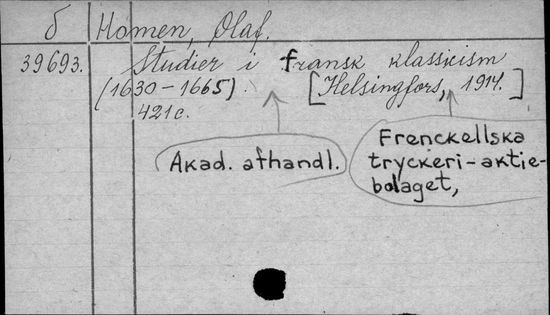 б Homen, Olaf.
39693. Studier i fransk klassicism
(1630-1665). [Helsingfors, 1914.]
421 c.
Akad. afhandl.
Frenckellska
tryckeri-aktie-
bolaget,